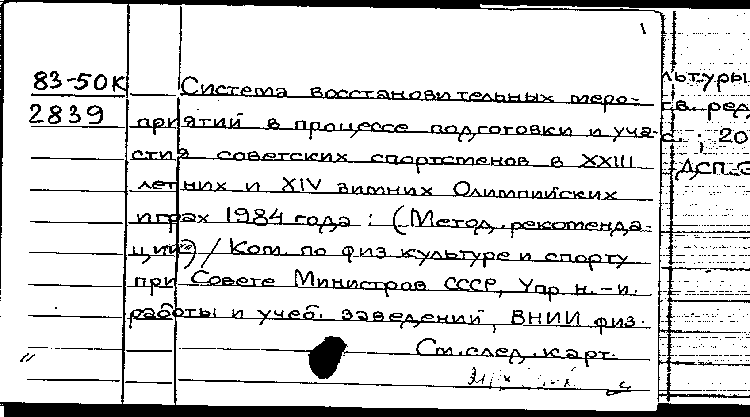 1
83-50К Система восстановительных меро-
2839 приятий в процессе подготовки и уча-
стия советских спортсменов в XXIII
летних и XIV зимних Олимпийских
играх 1984 года : (Метод. рекоменда-
ции) / Ком. по физ. культуре и спорту
при Совете Министров СССР, Упр. н.-и.
работы и учеб. заведений, ВНИИ физ.
См. след. карт.
льтуры
ред
; 20
ДСП